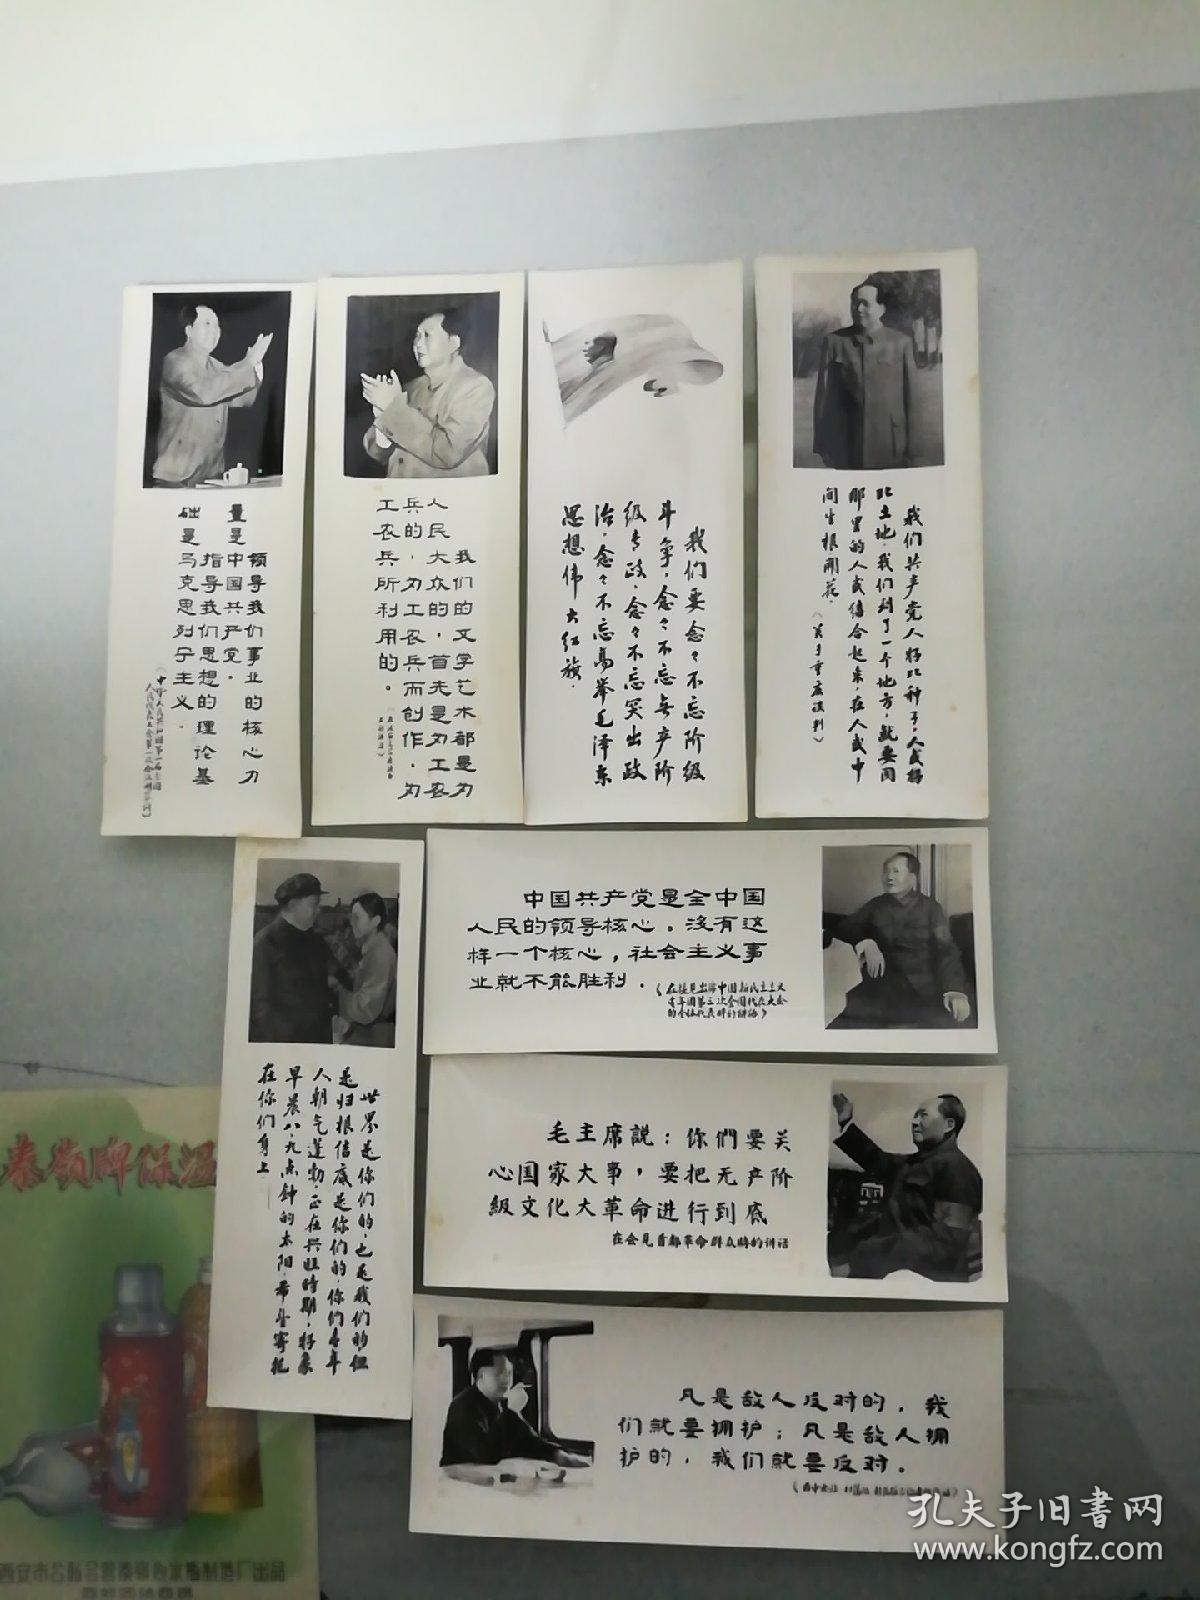 领导我们事业的核心力
量是中国共产党。
指导我们思想的理论基
础是马克思列宁主义.
我们的文学艺术都是为
人民大众的，首先是为工农
兵的，为工农兵而创作，为
工农兵所利用的。
我们要念々不忘阶级
斗争,念々不忘无产阶
级专政,念々不忘突出政
治,念々不忘高举毛泽东
思想伟大红旗.
我们共产党人好比种子,人民好
比土地.我们到了一个地方,就要同
那里的人民结合起来,在人民中
间生根开花.
《关于重庆谈判》
世界是你们的,也是我们的但
是归根结底是你们的.你们青年
人朝气蓬勃,正在兴旺时期,好象
早晨八.九点钟的太阳.希望寄托
在你们身上
中国共产党是全中国
人民的领导核心。没有这
样一个核心，社会主义事
业就不能胜利.
《在接见出席中国新民主主义
青年团第三次全国代表大会
的全体代表时的讲话》
毛主席説：你們要关
心国家大事，要把无产阶
級文化大革命进行到底
在会見首都革命群众時的讲话
凡是敌人反对的，我
们就要拥护；凡是敌人拥
护的，我们就要反对。
秦岭牌保温
孔夫子旧書网
www.kongfz.com